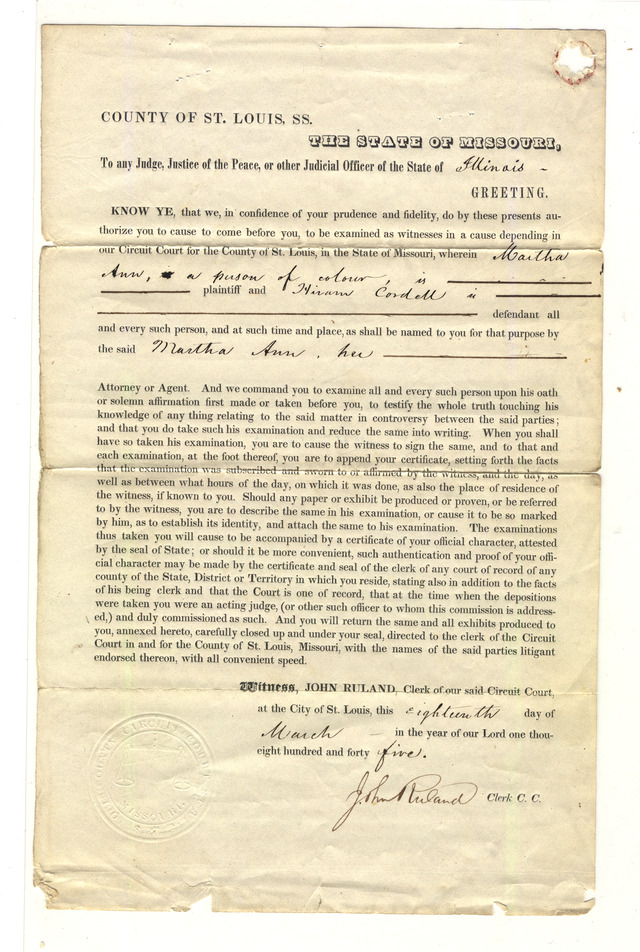 COUNTY OF ST. LOUIS, SS.
THE STATE OF MISSOURI,
To any Judge, Justice of the Peace, or other Judicial Officer of the State of Illinois -
GREETING.
KNOW YE, that we, in confidence of your prudence and fidelity, do by these presents au-
thorize you to cause to come before you, to be examined as witnesses in a cause depending in
our Circuit Court for the County of St. Louis, in the State of Missouri, wherein Martha
Ann, a person of colour, is
plaintiff and Hiram Cordell is
defendant all
and every such person, and at such time and place, as shall be named to you for that purpose by
the said Martha Ann, her
Attorney or Agent. And we command you to examine all and every such person upon his oath
or solemn affirmation first made or taken before you, to testify the whole truth touching his
knowledge of any thing relating to the said matter in controversy between the said parties;
and that you do take such his examination and reduce the same into writing. When you shall
have so taken his examination, you are to cause the witness to sign the same, and to that and
each examination, at the foot thereof, you are to append your certificate, setting forth the facts
that the examination was subscribed and sworn to or affirmed by the witness, and the day, as
well as between what hours of the day, on which it was done, as also the place of residence of
the witness, if known to you. Should any paper or exhibit be produced or proven, or be referred
to by the witness, you are to describe the same in his examination, or cause it to be so marked
by him, as to establish its identity, and attach the same to his examination. The examinations
thus taken you will cause to be accompanied by a certificate of your official character, attested
by the seal of State; or should it be more convenient, such authentication and proof of your offi-
cial character may be made by the certificate and seal of the clerk of any court of record of any
county of the State, District or Territory in which you reside, stating also in addition to the facts
of his being clerk and that the Court is one of record, that at the time when the depositions
were taken you were an acting judge, (or other such officer to whom this commission is address-
ed,) and duly commissioned as such. And you will return the same and all exhibits produced to
you, annexed hereto, carefully closed up and under your seal, directed to the clerk of the Circuit
Court in and for the County of St. Louis, Missouri, with the names of the said parties litigant
endorsed thereon, with all convenient speed.
Witness, JOHN RULAND, Clerk of our said Circuit Court,
at the City of St. Louis, this eighteenth day of
March - in the year of our Lord one thou-
eight hundred and forty five.
John Ruland Clerk C. C.
CIRCUIT COURT
MISSOURI